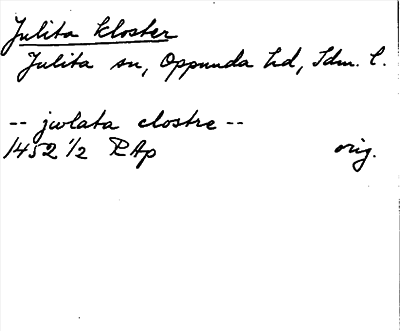 Julita kloster
Julita sn, Oppunda hd, Sdm. l.
-- jwlata clostre --
1452 1/2 RAp orig.